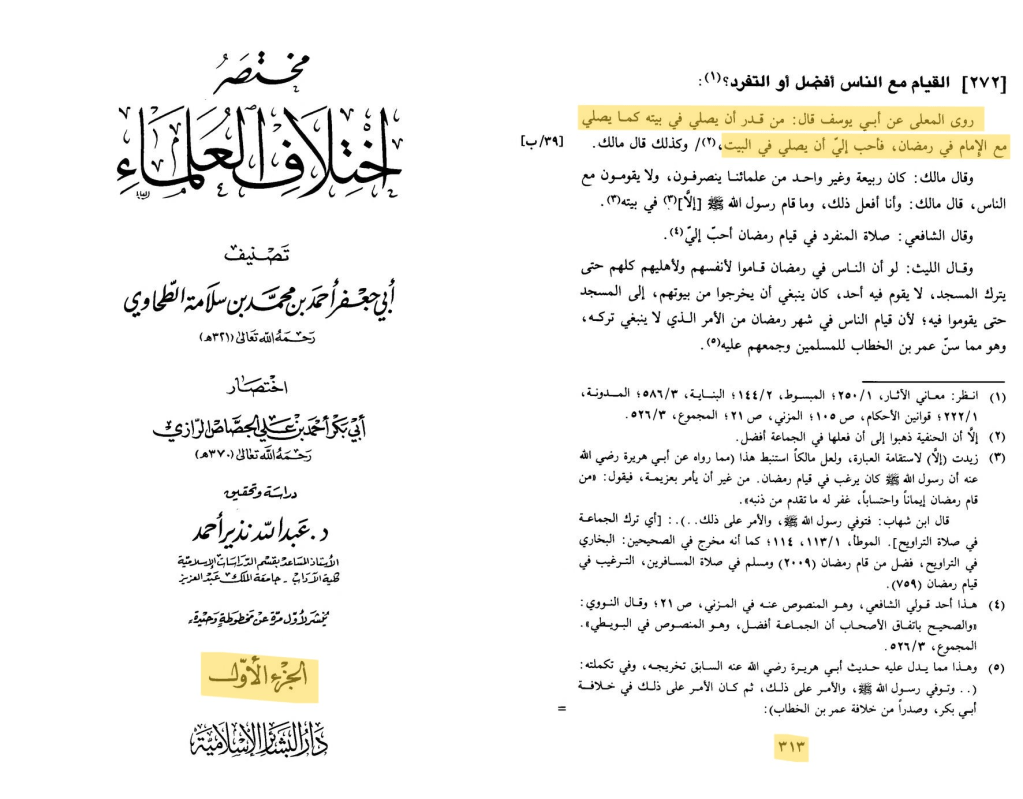 مختصر
اختلاف العلماء
تصنيف
أبي جعفر أحمد بن محمد بن سلامة الطحاوي
رحمه الله تعالى (٣٢١هـ)
اختصار
أبي بكر أحمد بن علي الجصاص الرازي
رحمه الله تعالى (٣٧٠هـ)
دراسة وتحقيق
د. عبد الله نذير أحمد
الأستاذ المساعد بقسم الدراسات الإسلامية
كلية الآداب - جامعة الملك عبد العزيز
ينشر لأول مرة عن مخطوطة وحيدة
الجزء الأول
دار البشائر الإسلامية
[٢٧٢] القيام مع الناس أفضل أو التفرد؟(١):
روى المعلى عن أبي يوسف قال: من قدر أن يصلي في بيته كما يصلي
مع الإمام في رمضان، فأحب إليّ أن يصلي في البيت،(٢)/ وكذلك قال مالك.
[٣٩/ب]
وقال مالك: كان ربيعة وغير واحد من علمائنا ينصرفون، ولا يقومون مع
الناس، قال مالك: وأنا أفعل ذلك، وما قام رسول الله ﷺ [إلَّا](٣) في بيته(٣).
وقال الشافعي: صلاة المنفرد في قيام رمضان أحبّ إليّ(٤).
وقال الليث: لو أن الناس في رمضان قاموا لأنفسهم ولأهليهم كلهم حتى
يترك المسجد، لا يقوم فيه أحد، كان ينبغي أن يخرجوا من بيوتهم، إلى المسجد
حتى يقوموا فيه؛ لأن قيام الناس في شهر رمضان من الأمر الذي لا ينبغي تركه،
وهو مما سنّ عمر بن الخطاب للمسلمين وجمعهم عليه(٥).
(١) انظر: معاني الآثار، ٢٥٠/١؛ المبسوط، ١٤٤/٢؛ البناية، ٥٨٦/٣؛ المدونة،
٢٢٢/١؛ قوانين الأحكام، ص ١٠٥؛ المزني، ص ٢١؛ المجموع، ٥٢٦/٣.
(٢) إلَّا أن الحنفية ذهبوا إلى أن فعلها في الجماعة أفضل.
(٣) زيدت (إلَّا) لاستقامة العبارة، ولعل مالكاً استنبط هذا (مما رواه عن أبي هريرة رضي الله
عنه أن رسول الله ﷺ كان يرغب في قيام رمضان. من غير أن يأمر بعزيمة، فيقول: «من
قام رمضان إيماناً واحتساباً، غفر له ما تقدم من ذنبه».
قال ابن شهاب: فتوفي رسول الله ﷺ، والأمر على ذلك..).: [أي ترك الجماعة
في صلاة التراويح]. الموطأ، ١١٣/١، ١١٤؛ كما أنه مخرج في الصحيحين: البخاري
في التراويح، فضل من قام رمضان (٢٠٠٩) ومسلم في صلاة المسافرين، الترغيب في
قيام رمضان (٧٥٩).
(٤) هذا أحد قولي الشافعي، وهو المنصوص عنه في المزني، ص ٢١؛ وقال النووي:
«والصحيح باتفاق الأصحاب أن الجماعة أفضل، وهو المنصوص في البويطي».
المجموع، ٥٢٦/٣.
(٥) وهذا مما يدل عليه حديث أبي هريرة رضي الله عنه السابق تخريجه، وفي تكملته:
(.. وتوفي رسول الله ﷺ، والأمر على ذلك، ثم كان الأمر على ذلك في خلافة
أبي بكر، وصدراً من خلافة عمر بن الخطاب):
=
٣١٣